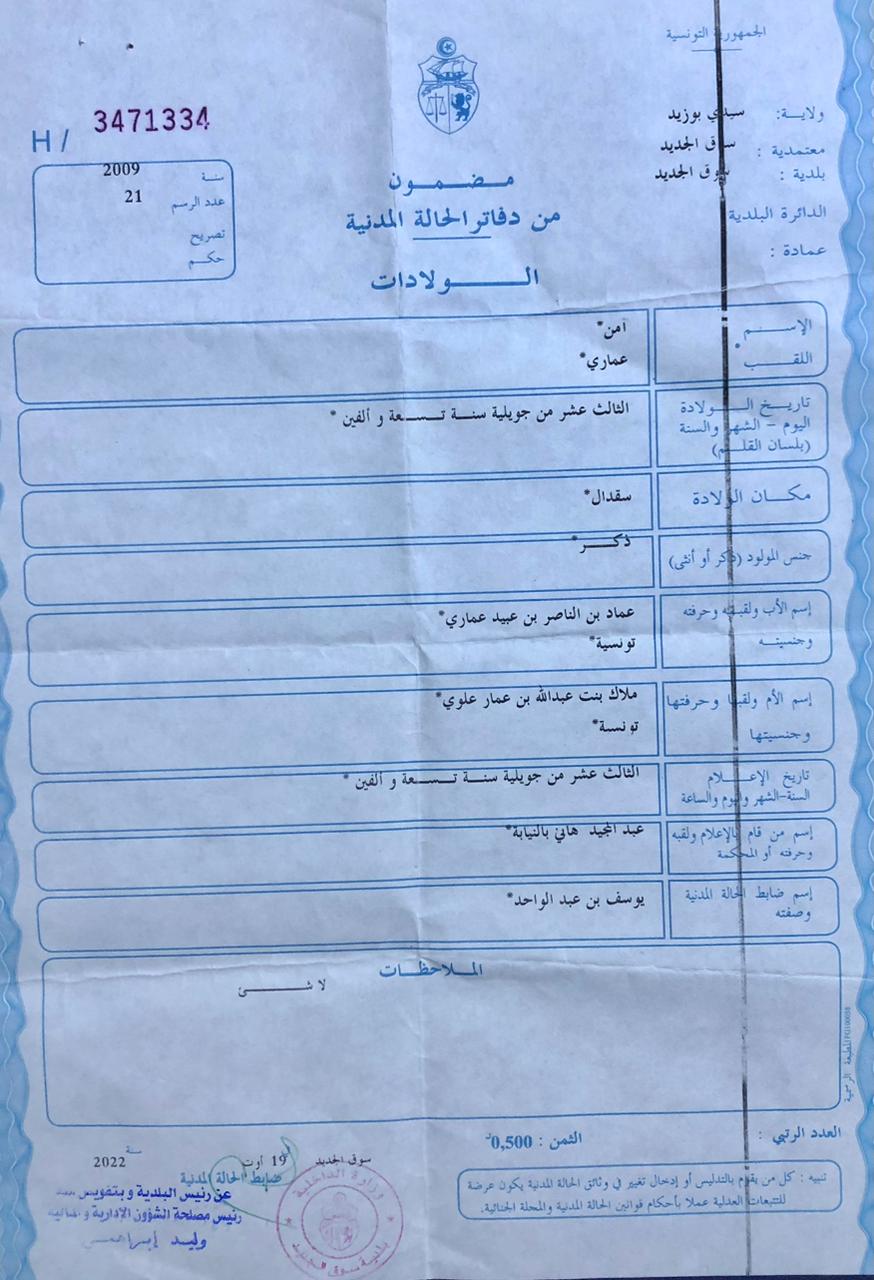 الجمهورية التونسية
ولاية: سيدي بوزيد
معتمدية : سوق الجديد
بلدية : سوق الجديد
الدائرة البلدية
عمادة :
H / 3471334
سنة 2009
عدد الرسم 21
تصريح
حكم
مضمون
من دفاتر الحالة المدنية
الولادات
الإسم امن*
اللقب عماري*
تاريخ الولادة
اليوم - الشهر والسنة
(بلسان القلم)
الثالث عشر من جويلية سنة تسعة و ألفين *
مكان الولادة سقدال*
جنس المولود (ذكر أو أنثى) ذكر*
إسم الأب ولقبه وحرفته
وجنسيته
عماد بن الناصر بن عبيد عماري*
تونسية*
إسم الأم ولقبها وحرفتها
وجنسيتها
ملاك بنت عبدالله بن عمار علوي*
تونسة*
تاريخ الإعلام
السنة-الشهر واليوم والساعة
الثالث عشر من جويلية سنة تسعة و ألفين *
إسم من قام بالإعلام ولقبه
وحرفته أو المحكمة
عبد المجيد هاني بالنيابة*
إسم ضابط الحالة المدنية
وصفته
يوسف بن عبد الواحد*
الملاحظات
لا شئ
المطبعة الرسمية
العدد الرتبي :
الثمن : 0,500د
تنبيه : كل من يقوم بالتدليس أو إدخال تغيير في وثائق الحالة المدنية يكون عرضة
للتتبعات العدلية عملا بأحكام قوانين الحالة المدنية والمجلة الجنائية.
سوق الجديد 19 أوت سنة 2022
ضابط الحالة المدنية
عن رئيس البلدية و بتفويض منه
رئيس مصلحة الشؤون الإدارية و المالية
وليد إبراهمي
وزارة الداخلية
بلدية سوق الجديد